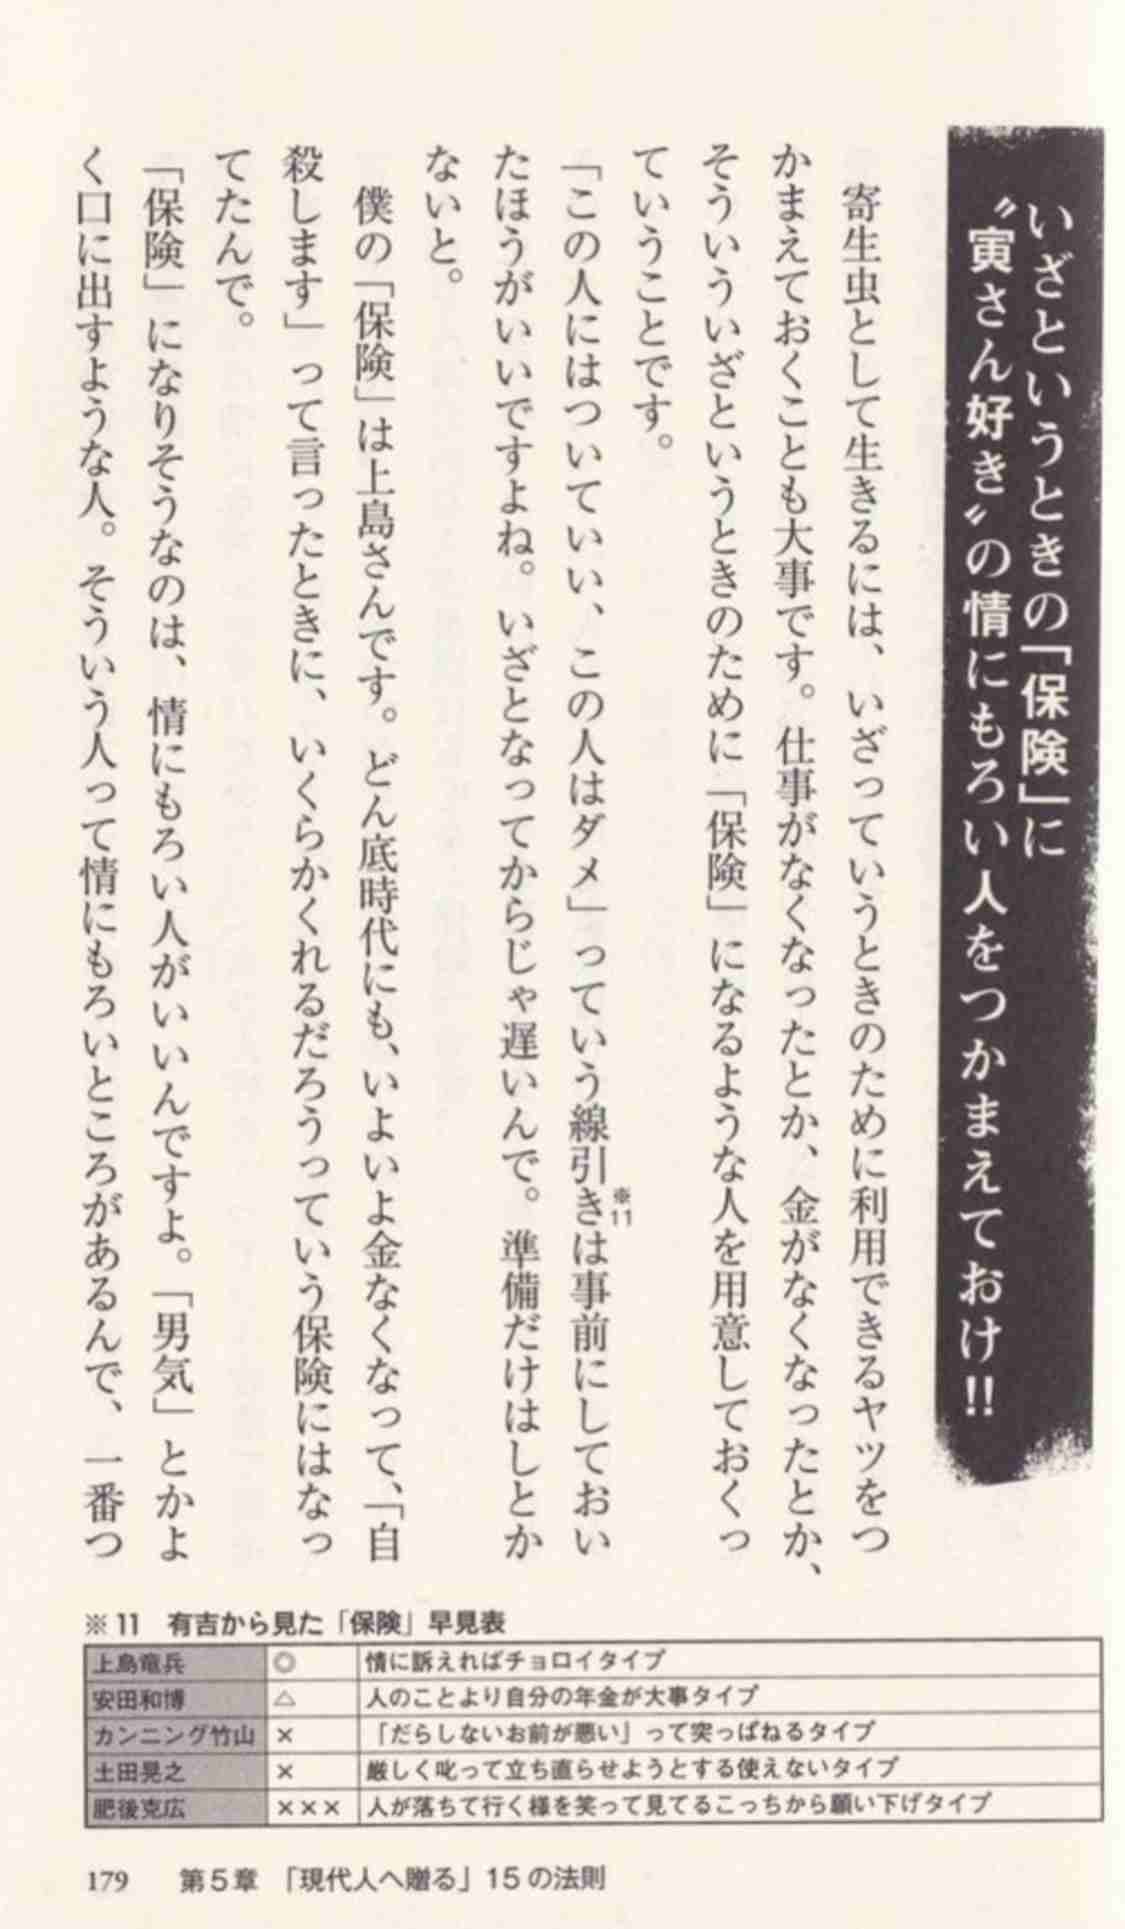 いざというときの「保険」に
〝寅さん好き〟の情にもろい人をつかまえておけ!!
寄生虫として生きるには、いざっていうときのために利用できるヤツをつ
かまえておくことも大事です。仕事がなくなったとか、金がなくなったとか、
そういういざというときのために「保険」になるような人を用意しておくっ
ていうことです。
「この人にはついていい、この人はダメ」っていう線引き※11は事前にしておい
たほうがいいですよね。いざとなってからじゃ遅いんで。準備だけはしとか
ないと。
僕の「保険」は上島さんです。どん底時代にも、いよいよ金なくなって、「自
殺します」って言ったときに、いくらかくれるだろうっていう保険にはなっ
てたんで。
「保険」になりそうなのは、情にもろい人がいいんですよ。「男気」とかよ
く口に出すような人。そういう人って情にもろいところがあるんで、一番つ
※11 有吉から見た「保険」早見表
上島竜兵 ◎ 情に訴えればチョロイタイプ
安田和博 △ 人のことより自分の年金が大事タイプ
カンニング竹山 × 「だらしないお前が悪い」って突っぱねるタイプ
土田晃之 × 厳しく叱って立ち直らせようとする使えないタイプ
肥後克広 ××× 人が落ちて行く様を笑って見てるこっちから願い下げタイプ
179 第5章 「現代人へ贈る」15の法則